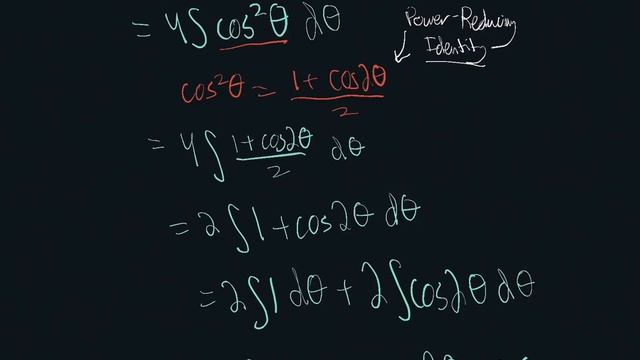 = 4∫ cos²θ dθ
Power-Reducing
Identity
cos²θ = (1 + cos2θ)/2
= 4∫ (1 + cos2θ)/2 dθ
= 2∫ 1 + cos2θ dθ
= 2∫ 1 dθ + 2∫ cos2θ dθ